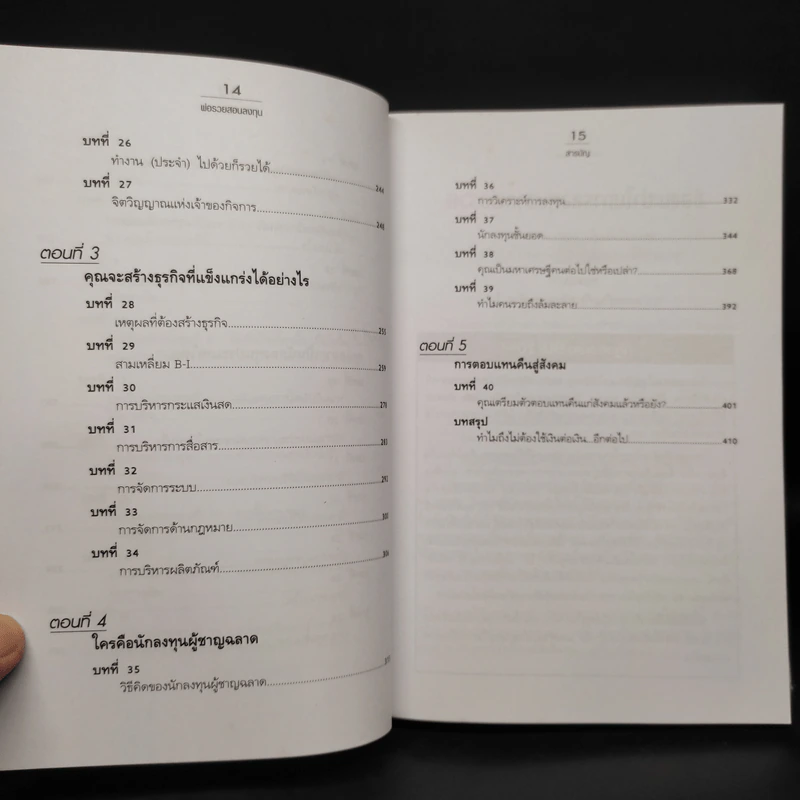 14
พ่อรวยสอนลงทุน
บทที่ 26
ทำงาน (ประจำ) ไปด้วยก็รวยได้..............................244
บทที่ 27
จิตวิญญาณแห่งเจ้าของกิจการ..............................248
ตอนที่ 3
คุณจะสร้างธุรกิจที่แข็งแกร่งได้อย่างไร
บทที่ 28
เหตุผลที่ต้องสร้างธุรกิจ..............................
บทที่ 29
สามเหลี่ยม B-I..............................259
บทที่ 30
การบริหารกระแสเงินสด..............................
บทที่ 31
การบริหารการสื่อสาร..............................
บทที่ 32
การจัดการระบบ..............................
บทที่ 33
การจัดการด้านกฎหมาย..............................
บทที่ 34
การบริหารผลิตภัณฑ์..............................
ตอนที่ 4
ใครคือนักลงทุนผู้ชาญฉลาด
บทที่ 35
วิธีคิดของนักลงทุนผู้ชาญฉลาด..............................
15
สารบัญ
บทที่ 36
การวิเคราะห์การลงทุน..............................332
บทที่ 37
นักลงทุนชั้นยอด..............................344
บทที่ 38
คุณเป็นมหาเศรษฐีคนต่อไปใช่หรือเปล่า?..............................368
บทที่ 39
ทำไมคนรวยถึงล้มละลาย..............................392
ตอนที่ 5
การตอบแทนคืนสู่สังคม
บทที่ 40
คุณเตรียมตัวตอบแทนคืนแก่สังคมแล้วหรือยัง?..............................401
บทสรุป
ทำไมถึงไม่ต้องใช้เงินต่อเงิน...อีกต่อไป..............................410